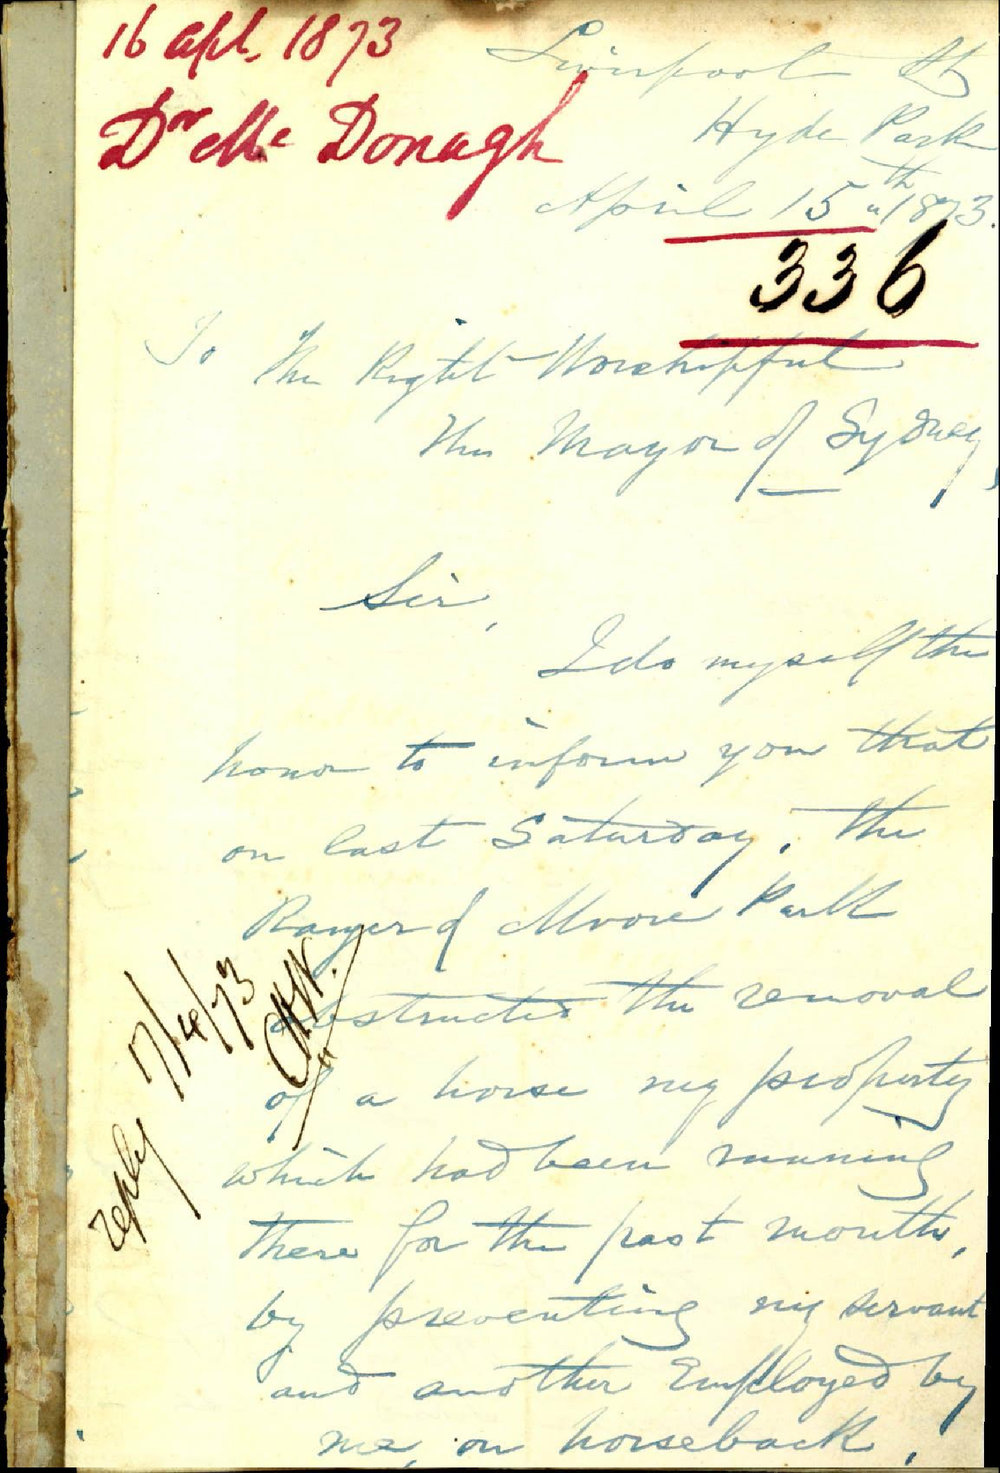 16 Apl. 1873
Dr Mc Donagh
Liverpool St
Hyde Park
April 15th 1873.
336
To The Right Worshipful
The Mayor of Sydney,
Sir,
I do myself the
honor to inform you that
on last Saturday, the
Ranger of Moore Park
obstructed the removal
of a horse my property
which had been running
there for the past month,
by preventing my servant
and another Employed by
me, on horseback,
reply 17/4/73